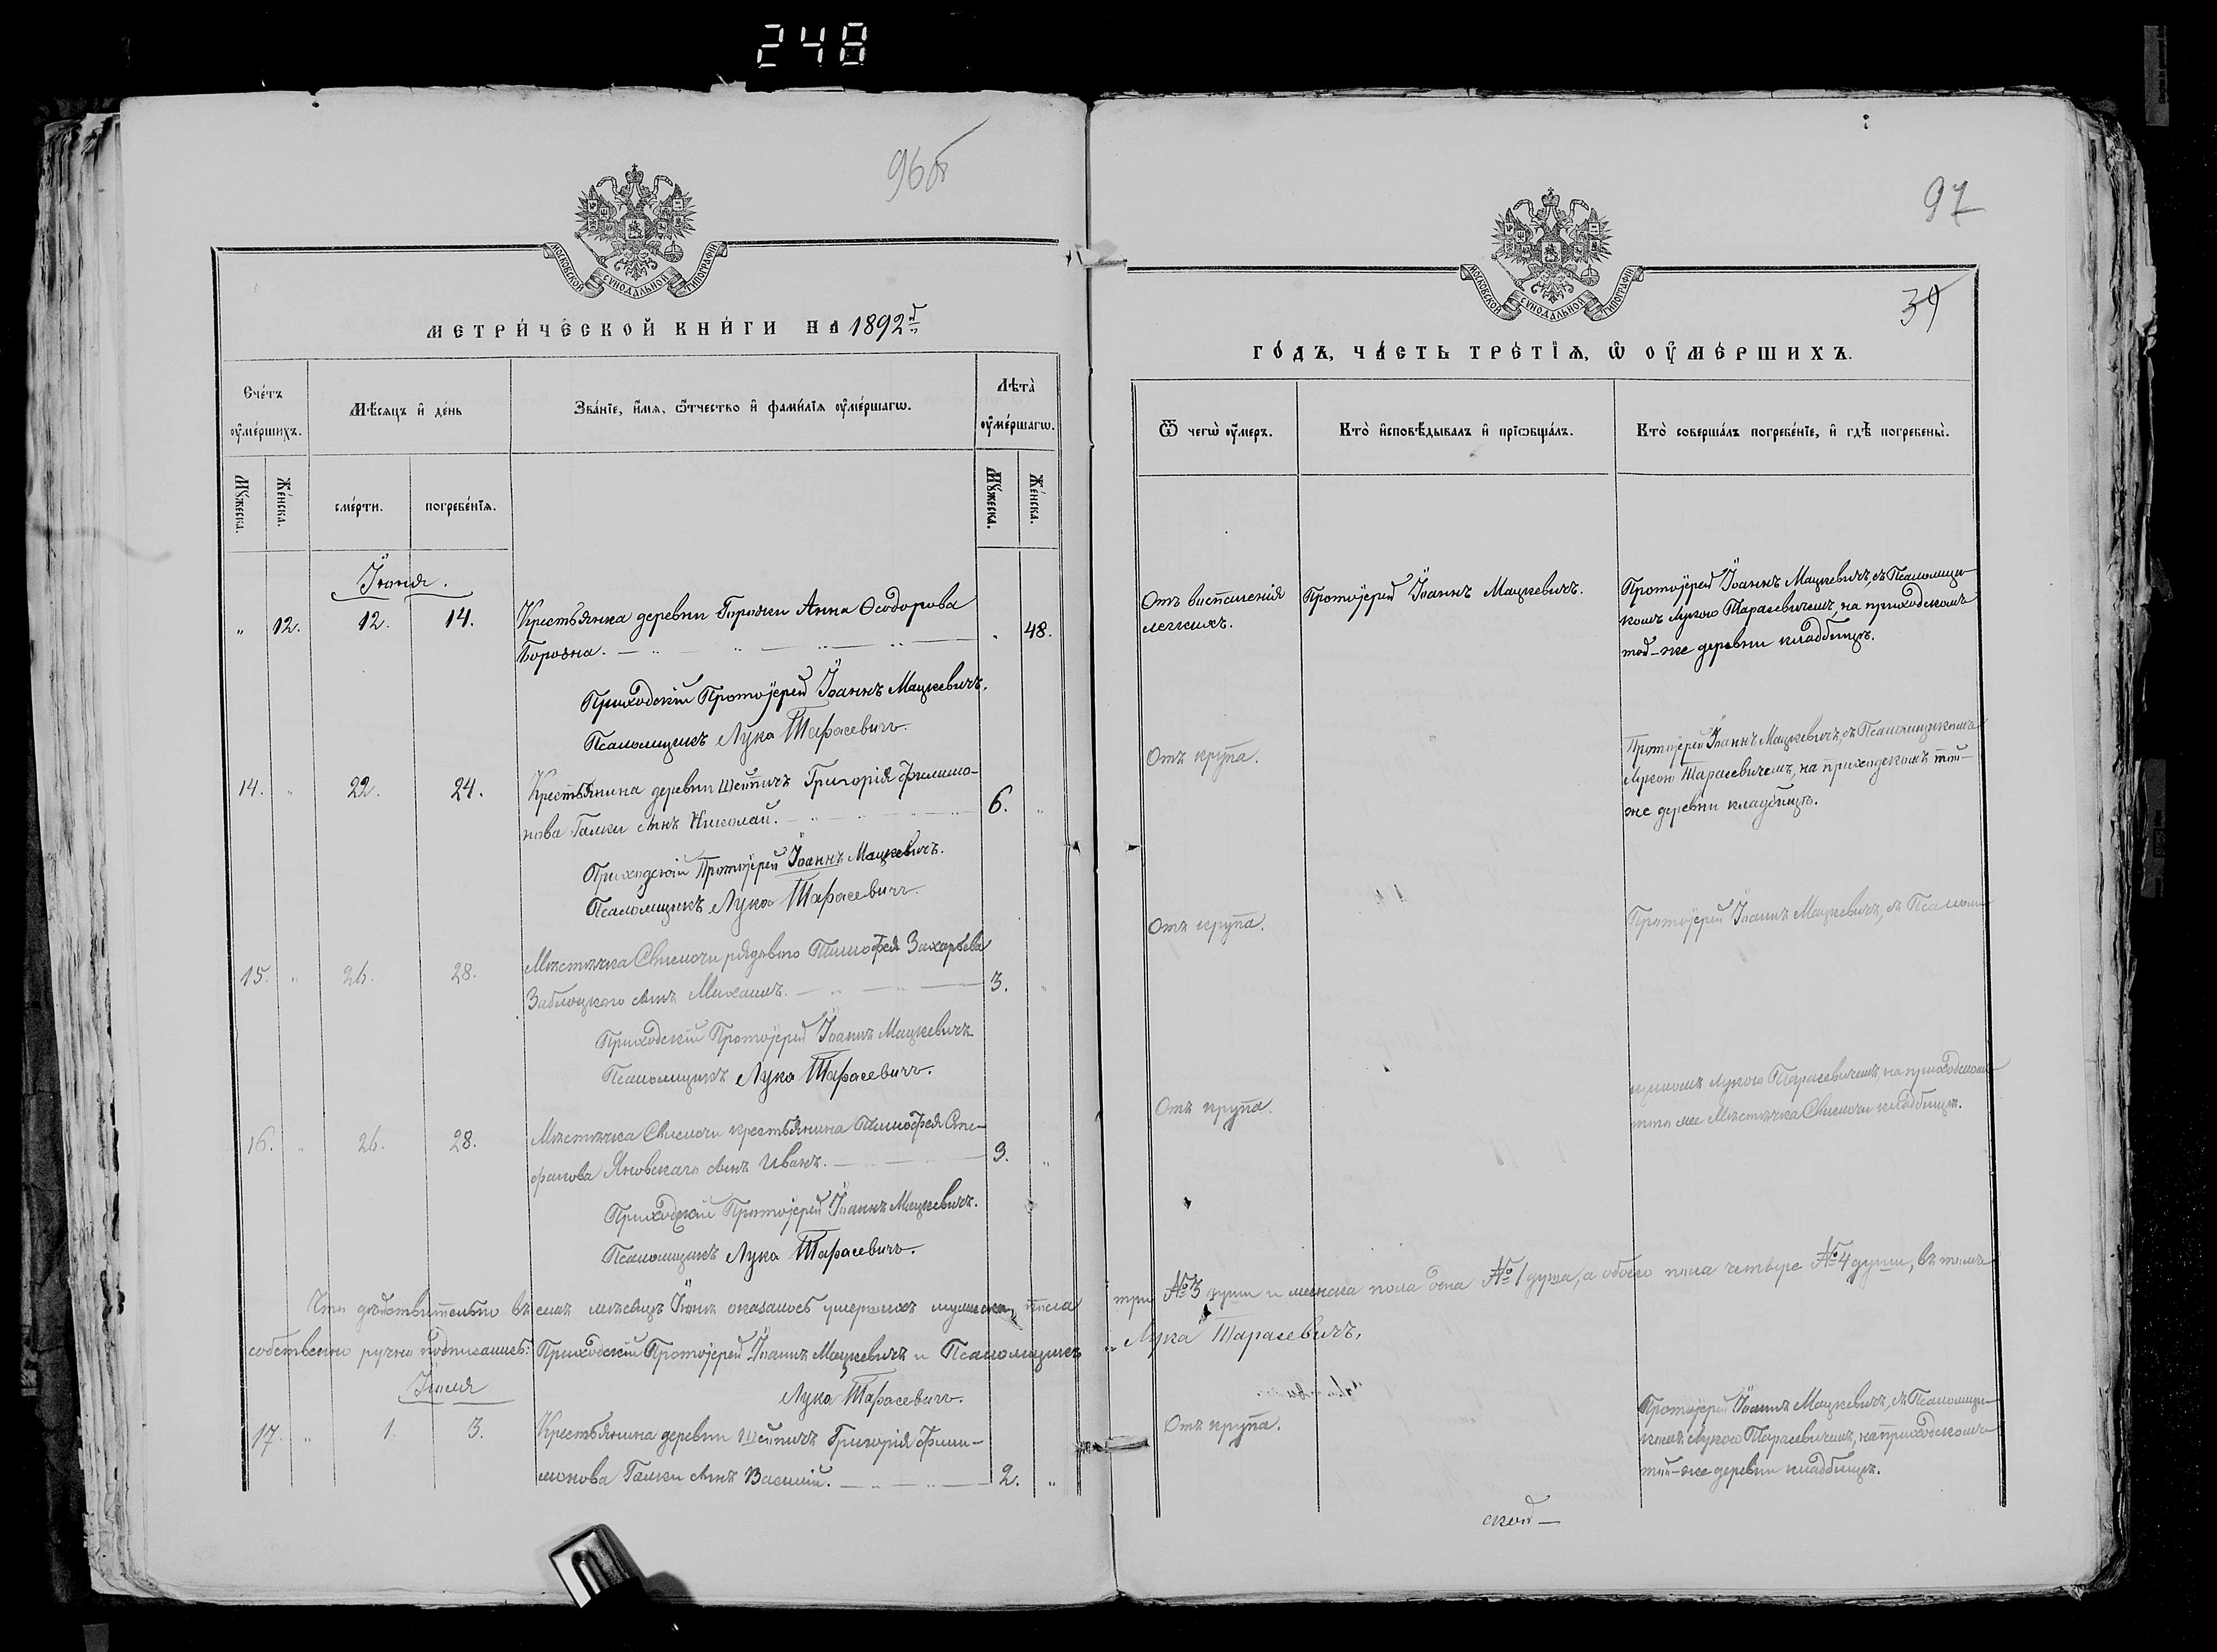 248
96об
МОСКОВСКОЙ СѴНОДАЛЬНОЙ ТИПОГРАФІИ
МЕТРИ́ЧЕСКОЙ КНИ́ГИ НА 1892 г.
Сче́тъ ᲂу҆ме́ршихъ.
Мѣ́сяцъ и҆ де́нь
Зва́нїе, и҆́мѧ, ѻ҆́тчество и҆ фами́лїѧ ᲂу҆ме́ршагѡ.
Лѣта̀ ᲂу҆ме́ршагѡ.
Мꙋ́жеска.
Же́нска.
сме́рти.
погребе́нїѧ.
Мꙋ́жеска.
Же́нска.
Іюня.
" 12. 12. 14. Крестьянка деревни Горожки Анна Ѳеодорова " 48.
Борозна.
Приходскій Протоіерей Іоаннъ Мацкевичъ.
Псаломщикъ Лука Тарасевичъ.
14. " 22. 24. Крестьянина деревни Шейпичъ Григорія Филимо-
нова Галки сынъ Николай. 6. "
Приходскій Протоіерей Іоаннъ Мацкевичъ.
Псаломщикъ Лука Тарасевичъ.
15. " 26. 28. Мѣстечка Свислочи рядового Тимофея Захарьева
Заблоцкого сынъ Михаилъ. 3. "
Приходскій Протоіерей Іоаннъ Мацкевичъ
Псаломщикъ Лука Тарасевичъ.
16. " 26. 28. Мѣстечка Свислочи крестьянина Тимофея Сте-
фанова Яновскаго сынъ Иванъ. 3. "
Приходскій Протоіерей Іоаннъ Мацкевичъ.
Псаломщикъ Лука Тарасевичъ.
Что дѣйствительно въ семъ мѣсяцѣ Іюнѣ оказалось умершихъ мужеска пола
собственно ручно подписались: Приходскій Протоіерей Іоаннъ Мацкевичъ и Псаломщикъ
Лука Тарасевичъ.
Іюля
17. " 1. 3. Крестьянина деревни Шейпичъ Григорія Фили-
монова Галки сынъ Василій. 2. "
97
39
МОСКОВСКОЙ СѴНОДАЛЬНОЙ ТИПОГРАФІИ
ГО́ДЪ, ЧА́СТЬ ТРЕ́ТЇѦ, Ѡ҆ ОУ҆МЕ́РШИХЪ.
Ѿ чегѡ̀ ᲂу҆́меръ.
Кто̀ и҆сповѣ́дывалъ и҆ прїѡбща́лъ.
Кто̀ соверша́лъ погребе́нїе, и҆ гдѣ̀ погребены̀.
Отъ воспаленія Протоіерей Іоаннъ Мацкевичъ. Протоіерей Іоаннъ Мацкевичъ, съ Псаломщи-
легкихъ. комъ Лукою Тарасевичемъ, на приходскомъ
той-же деревни кладбищѣ.
Отъ крупа. Протоіерей Іоаннъ Мацкевичъ, съ Псаломщикомъ
Лукою Тарасевичемъ, на приходскомъ той-
же деревни кладбищѣ.
Отъ крупа. Протоіерей Іоаннъ Мацкевичъ, съ Псалом-
Отъ крупа. щикомъ Лукою Тарасевичемъ, на приходском
того же Мѣстечка Свислочи кладбищѣ.
три № 3 души и женска пола одна № 1 душа, а обоего пола четыре № 4 души, въ томъ
Лука Тарасевичъ.
Отъ крупа. Протоіерей Іоаннъ Мацкевичъ, съ Псаломщи-
комъ Лукою Тарасевичемъ, на приходскомъ
той-же деревни кладбищѣ.